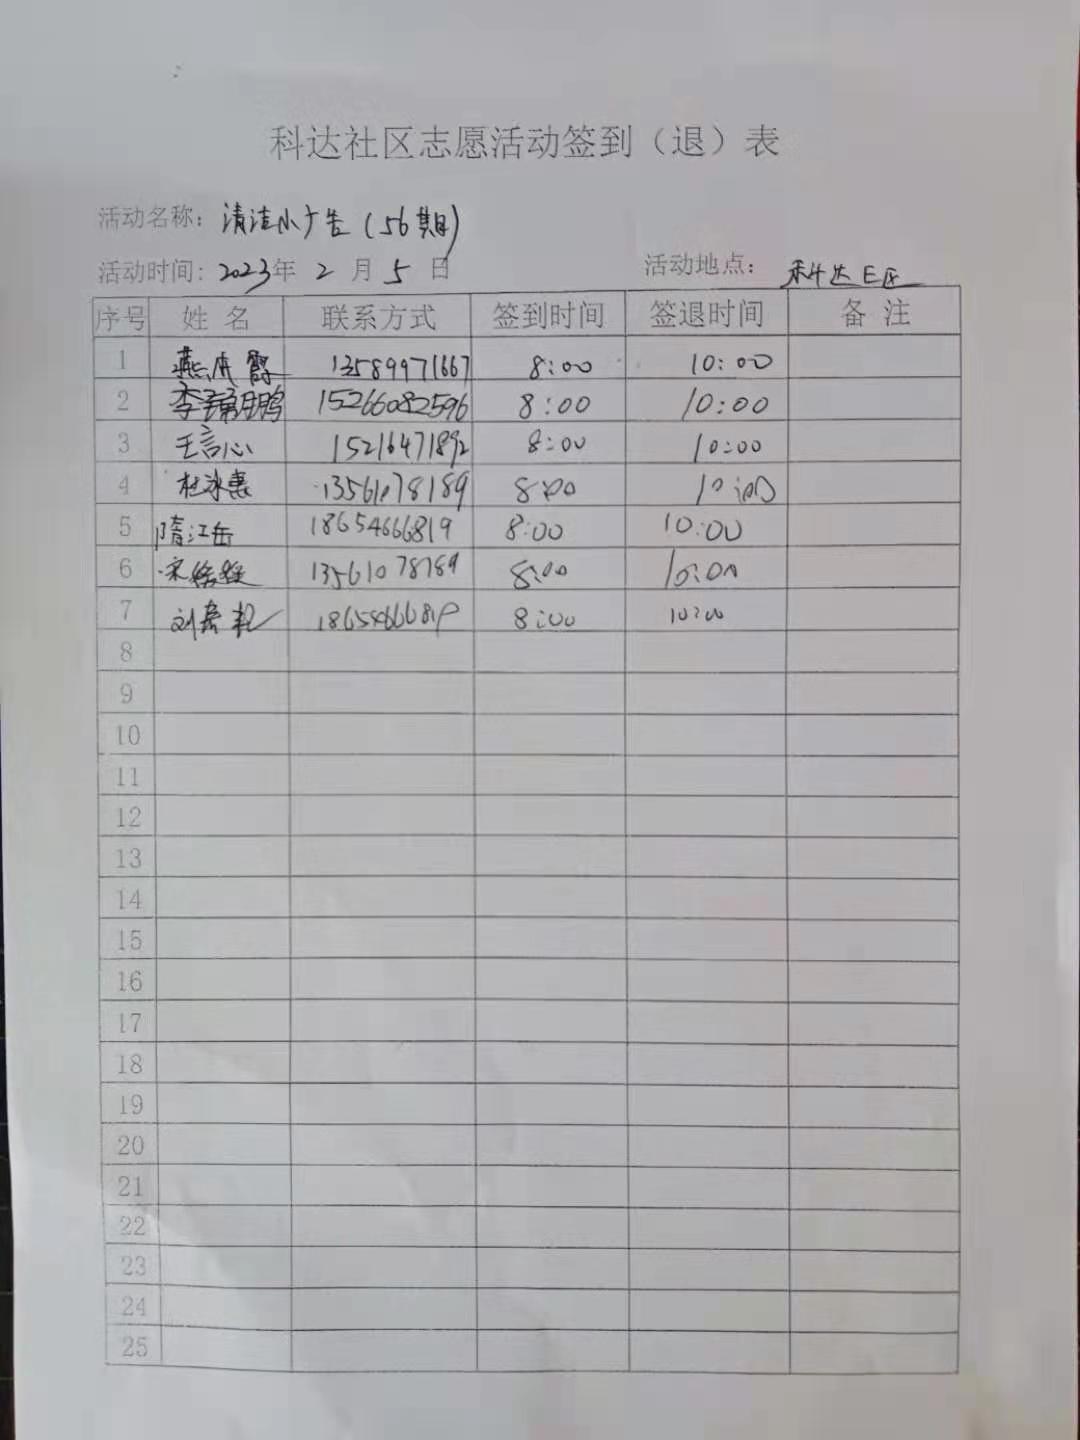 科达社区志愿活动签到（退）表
活动名称：清洁小广告（56期）
活动时间：2023年 2 月 5 日 活动地点：科达E区
序号 姓 名 联系方式 签到时间 签退时间 备 注
1 燕 霞 13589971667 8:00 10:00
2 李 鹏 15266082596 8:00 10:00
3 王言心 15216471892 8:00 10:00
4 杜冰惠 13561078189 8:00 10:00
5 隋江岳 18654666819 8:00 10:00
6 宋 13561078189 8:00 10:00
7 刘 18654666819 8:00 10:00
8
9
10
11
12
13
14
15
16
17
18
19
20
21
22
23
24
25